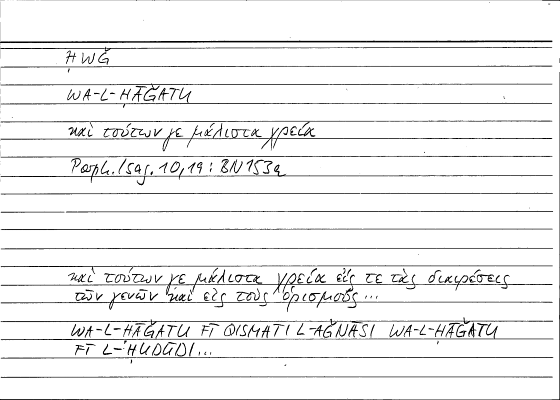 ḤWǦ
WA-L-ḤĀǦATU
καὶ τούτων γε μάλιστα χρεία
Porph. Isag. 10,19 : BN 153a
καὶ τούτων γε μάλιστα χρεία εἴς τε τὰς διαιρέσεις
τῶν γενῶν καὶ εἰς τοὺς ὁρισμούς...
WA-L-ḤĀǦATU FĪ QISMATI L-AǦNĀSI WA-L-ḤĀǦATU
FĪ L-ḤUDŪDI...